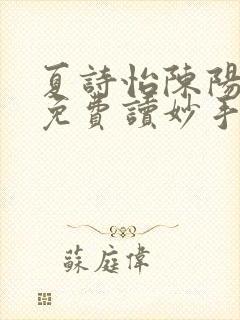 夏詩怡陳陽
免費讀妙手
蘇庭偉